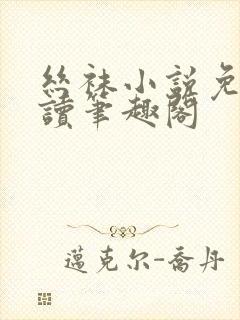 絲袜小説免
讀筆趣閣
邁克尔-喬丹